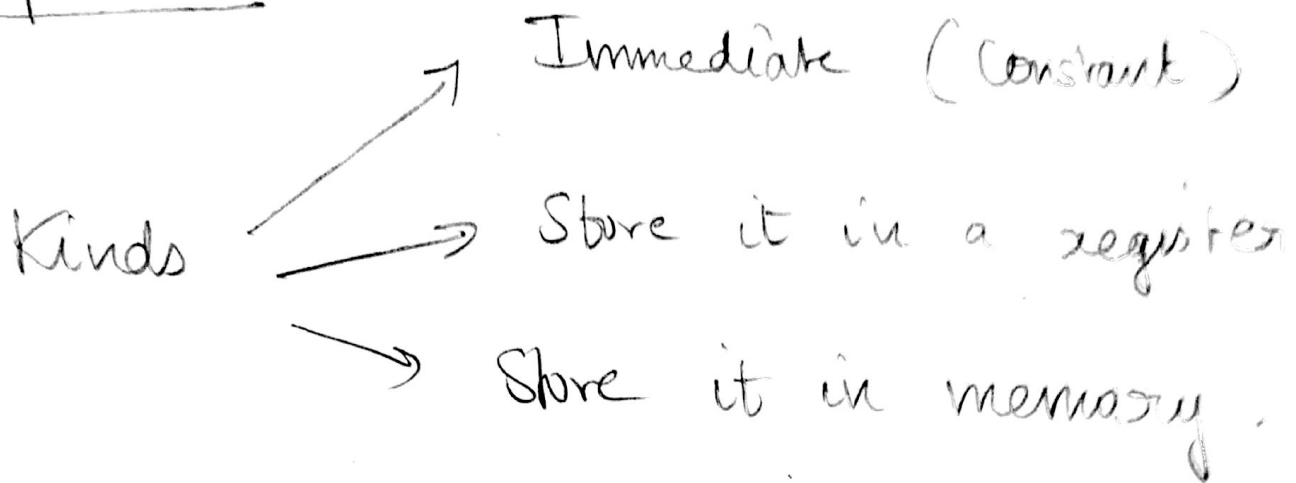 Immediate (Constant)
Kinds
Store it in a register
Store it in memory.